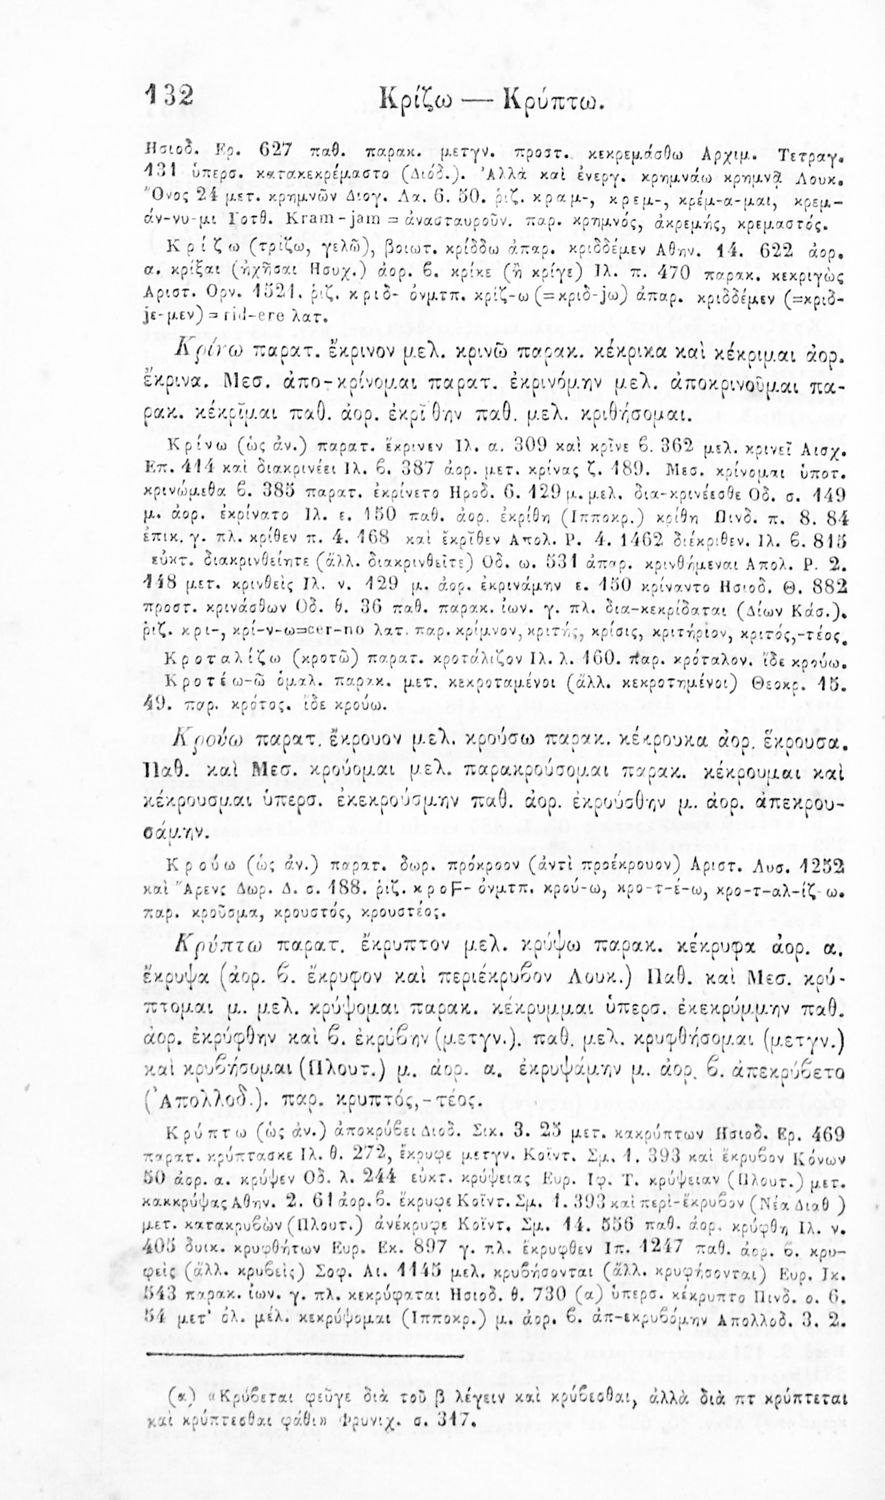 132 Κρίζω — Κρύπτω.
Ησιοδ. Ερ. 627 παθ. παρακ. μετγν. προστ. κεκρεμάσθω Αρχιμ. Τετραγ.
131 ὑπερσ. κατακεκρέμαστο (Διόδ.). Ἀλλὰ καὶ ἐνεργ. κρημνάω κρημνᾷ Λουκ.
Ὄνος 24 μετ. κρημνῶν Διογ. Λα. 6. 50. ῥιζ. κραμ-, κρεμ-, κρέμ-α-μαι, κρεμ-
άν-νυ-μι Γοτθ. Kram-jam = ἀνασταυροῦν. παρ. κρημνός, ἀκρεμής, κρεμαστός.
Κρίζω (τρίζω, γελῶ), βοιωτ. κρίδδω ἀπαρ. κριδδέμεν Αθην. 14. 622 ἀορ.
α. κρίξαι (ἠχῆσαι Ησυχ.) ἀορ. ϐ. κρίκε (ἢ κρίγε) Ιλ. π. 470 παρακ. κεκριγὼς
Αριστ. Ορν. 1521. ῥιζ. κριδ- ὀνμτπ. κρίζ-ω (=κριδ-jω) ἀπαρ. κριδδέμεν (=κριδ-
jε-μεν) = rid-ere λατ.
Κρίνω παρατ. ἔκρινον μελ. κρινῶ παρακ. κέκρικα καὶ κέκριμαι ἀορ.
ἔκρινα. Μεσ. ἀπο-κρίνομαι παρατ. ἐκρινόμην μελ. ἀποκρινοῦμαι πα-
ρακ. κέκρῐμαι παθ. ἀορ. ἐκρῐ́θην παθ. μελ. κριθήσομαι.
Κρίνω (ὡς ἀν.) παρατ. ἔκρινεν Ιλ. α. 309 καὶ κρῖνε ϐ. 362 μελ. κρινεῖ Αισχ.
Επ. 414 καὶ διακρινέει Ιλ. ϐ. 387 ἀορ. μετ. κρίνας ζ. 189. Μεσ. κρίνομαι ὑποτ.
κρινώμεθα ϐ. 385 παρατ. ἐκρίνετο Ηροδ. 6. 129 μ. μελ. δια-κρινέεσθε Οδ. σ. 149
μ. ἀορ. ἐκρίνατο Ιλ. ε. 150 παθ. ἀορ. ἐκρίθη (Ιπποκρ.) κρίθη Πινδ. π. 8. 84
ἐπικ. γ. πλ. κρίθεν π. 4. 168 καὶ ἔκρῐθεν Απολ. Ρ. 4. 1462 διέκριθεν. Ιλ. ϐ. 815
εὐκτ. διακρινθείητε (ἄλλ. διακρινθεῖτε) Οδ. ω. 531 ἀπαρ. κρινθήμεναι Απολ. Ρ. 2.
148 μετ. κρινθεὶς Ιλ. ν. 129 μ. ἀορ. ἐκρινάμην ε. 150 κρίναντο Ησιοδ. Θ. 882
προστ. κρινάσθων Οδ. θ. 36 παθ. παρακ. ἰων. γ. πλ. δια-κεκρίδαται (Δίων Κάσ.).
ῥιζ. κρι-, κρί-ν-ω=cer-no λατ. παρ. κρίμνον, κριτής, κρίσις, κριτήριον, κριτός,-τέος.
Κροταλίζω (κροτῶ) παρατ. κροτάλιζον Ιλ. λ. 160. παρ. κρόταλον. ἴδε κρούω.
Κροτέω-ῶ ὁμαλ. παρακ. μετ. κεκροταμένοι (ἄλλ. κεκροτημένοι) Θεοκρ. 15.
49. παρ. κρότος. ἴδε κρούω.
Κρούω παρατ. ἔκρουον μελ. κρούσω παρακ. κέκρουκα ἀορ. ἔκρουσα.
Παθ. καὶ Μεσ. κρούομαι μελ. παρακρούσομαι παρακ. κέκρουμαι καὶ
κέκρουσμαι ὑπερσ. ἐκεκρούσμην παθ. ἀορ. ἐκρούσθην μ. ἀορ. ἀπεκρου-
σάμην.
Κρούω (ὡς ἀν.) παρατ. δωρ. πρόκροον (ἀντὶ προέκρουον) Αριστ. Λυσ. 1252
καὶ Ἄρενς Δωρ. Δ. σ. 188. ῥιζ. κροϝ- ὀνμτπ. κρού-ω, κρο-τ-έ-ω, κρο-τ-αλ-ίζ-ω.
παρ. κροῦσμα, κρουστός, κρουστέος.
Κρύπτω παρατ. ἔκρυπτον μελ. κρύψω παρακ. κέκρυφα ἀορ. α.
ἔκρυψα (ἀορ. ϐ. ἔκρυφον καὶ περιέκρυϐον Λουκ.) Παθ. καὶ Μεσ. κρύ-
πτομαι μ. μελ. κρύψομαι παρακ. κέκρυμμαι ὑπερσ. ἐκεκρύμμην παθ.
ἀορ. ἐκρύφθην καὶ ϐ. ἐκρύϐην (μετγν.). παθ. μελ. κρυφθήσομαι (μετγν.)
καὶ κρυϐήσομαι (Πλουτ.) μ. ἀορ. α. ἐκρυψάμην μ. ἀορ. ϐ. ἀπεκρύϐετο
(Ἀπολλοδ.). παρ. κρυπτός,-τέος.
Κρύπτω (ὡς ἀν.) ἀποκρύϐει Διοδ. Σικ. 3. 25 μετ. κακρύπτων Ησιοδ. Ερ. 469
παρατ. κρύπτασκε Ιλ. θ. 272, ἔκρυφε μετγν. Κοϊντ. Σμ. 1. 393 καὶ ἔκρυϐον Κόνων
50 ἀορ. α. κρύψεν Οδ. λ. 244 εὐκτ. κρύψειας Ευρ. Ιφ. Τ. κρύψειαν (Πλουτ.) μετ.
κακκρύψας Αθην. 2. 61 ἀορ. ϐ. ἔκρυφε Κοϊντ. Σμ. 1. 393 καὶ περι-έκρυϐον (Νέα Διαθ )
μετ. κατακρυϐὼν (Πλουτ.) ἀνέκρυφε Κοϊντ. Σμ. 14. 556 παθ. ἀορ. κρύφθη Ιλ. ν.
405 δυικ. κρυφθήτων Ευρ. Εκ. 897 γ. πλ. ἔκρυφθεν Ιπ. 1247 παθ. ἀορ. ϐ. κρυ-
φεὶς (ἄλλ. κρυϐεὶς) Σοφ. Αι. 1145 μελ. κρυϐήσονται (ἄλλ. κρυφήσονται) Ευρ. Ικ.
543 παρακ. ἰων. γ. πλ. κεκρύφαται Ησιοδ. θ. 730 (α) ὑπερσ. κέκρυπτο Πινδ. ο. 6.
54 μετ' ὀλ. μέλ. κεκρύψομαι (Ιπποκρ.) μ. ἀορ. ϐ. ἀπ-εκρυϐόμην Απολλοδ. 3. 2.
(α) «Κρύϐεται φεῦγε διὰ τοῦ β λέγειν καὶ κρύϐεσθαι, ἀλλὰ διὰ πτ κρύπτεται
καὶ κρύπτεσθαι φάθι» Φρυνιχ. σ. 317.